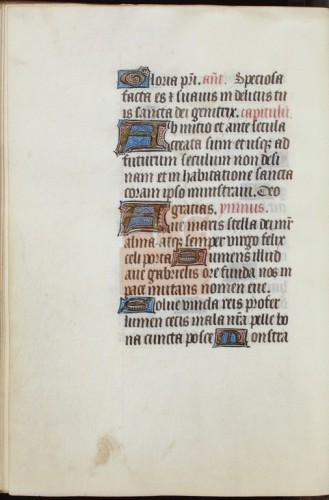 Gloria pri. añt. Speciosa
facta es et suavis in deliciis tu
is sancta dei genitrix. capitulũ
Ab inicio et ante secula
creata sum et usq; ad
futurum seculum non desi
nam et in habitatione sancta
coram ipso ministravi. Deo
gracias. ymnus.
Ave maris stella dei mr̃
alma atq; semper virgo felix
celi porta Sumens illud
ave gabrielis ore funda nos in
pace mutans nomen eve.
Solve vincla reis profer
lumen cecis mala nr̃a pelle bo
na cuncta posce Monstra